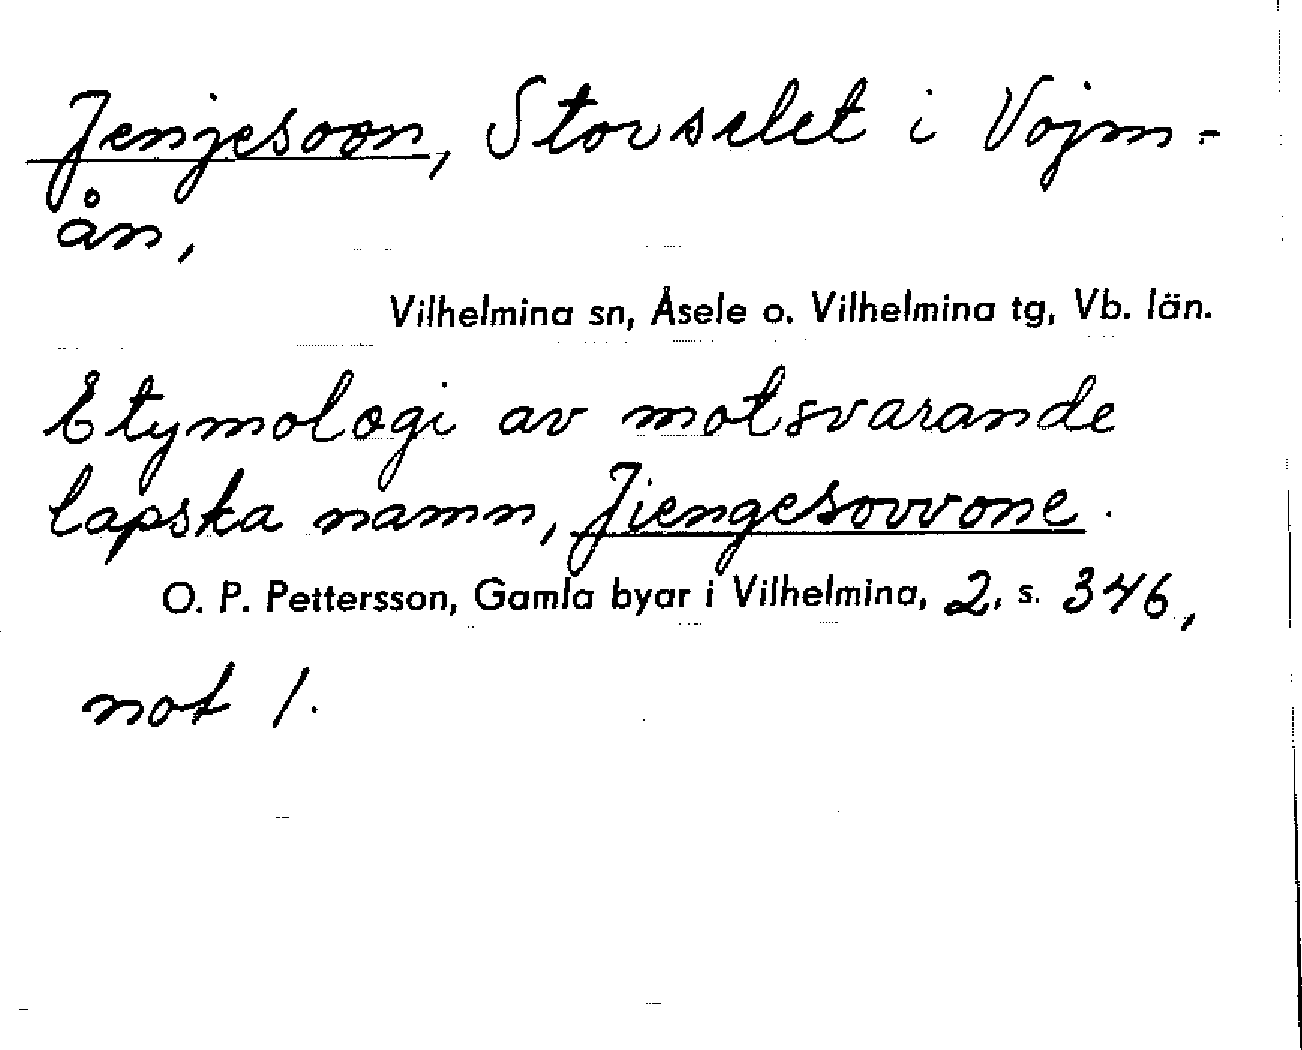 Jenjesoon, Storselet i Vojm-
ån,
Vilhelmina sn, Åsele o. Vilhelmina tg, Vb. län.
Etymologi av motsvarande
lapska namn, Jiengesovvone.
O. P. Pettersson, Gamla byar i Vilhelmina, 2, s. 346,
not 1.